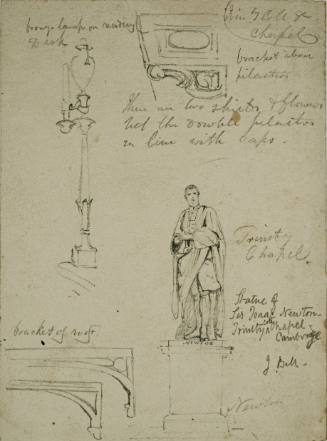 bronze lamp on reading
Desk
Trinity
Chapel
bracket above
pilasters
There are two shields & flowers
not the double pilasters
in line with caps.
Trinity
Chapel.
NEWTON
Statue of
Sir Isaac Newton
Trinity Chapel
Cambridge
bracket of roof
Newton